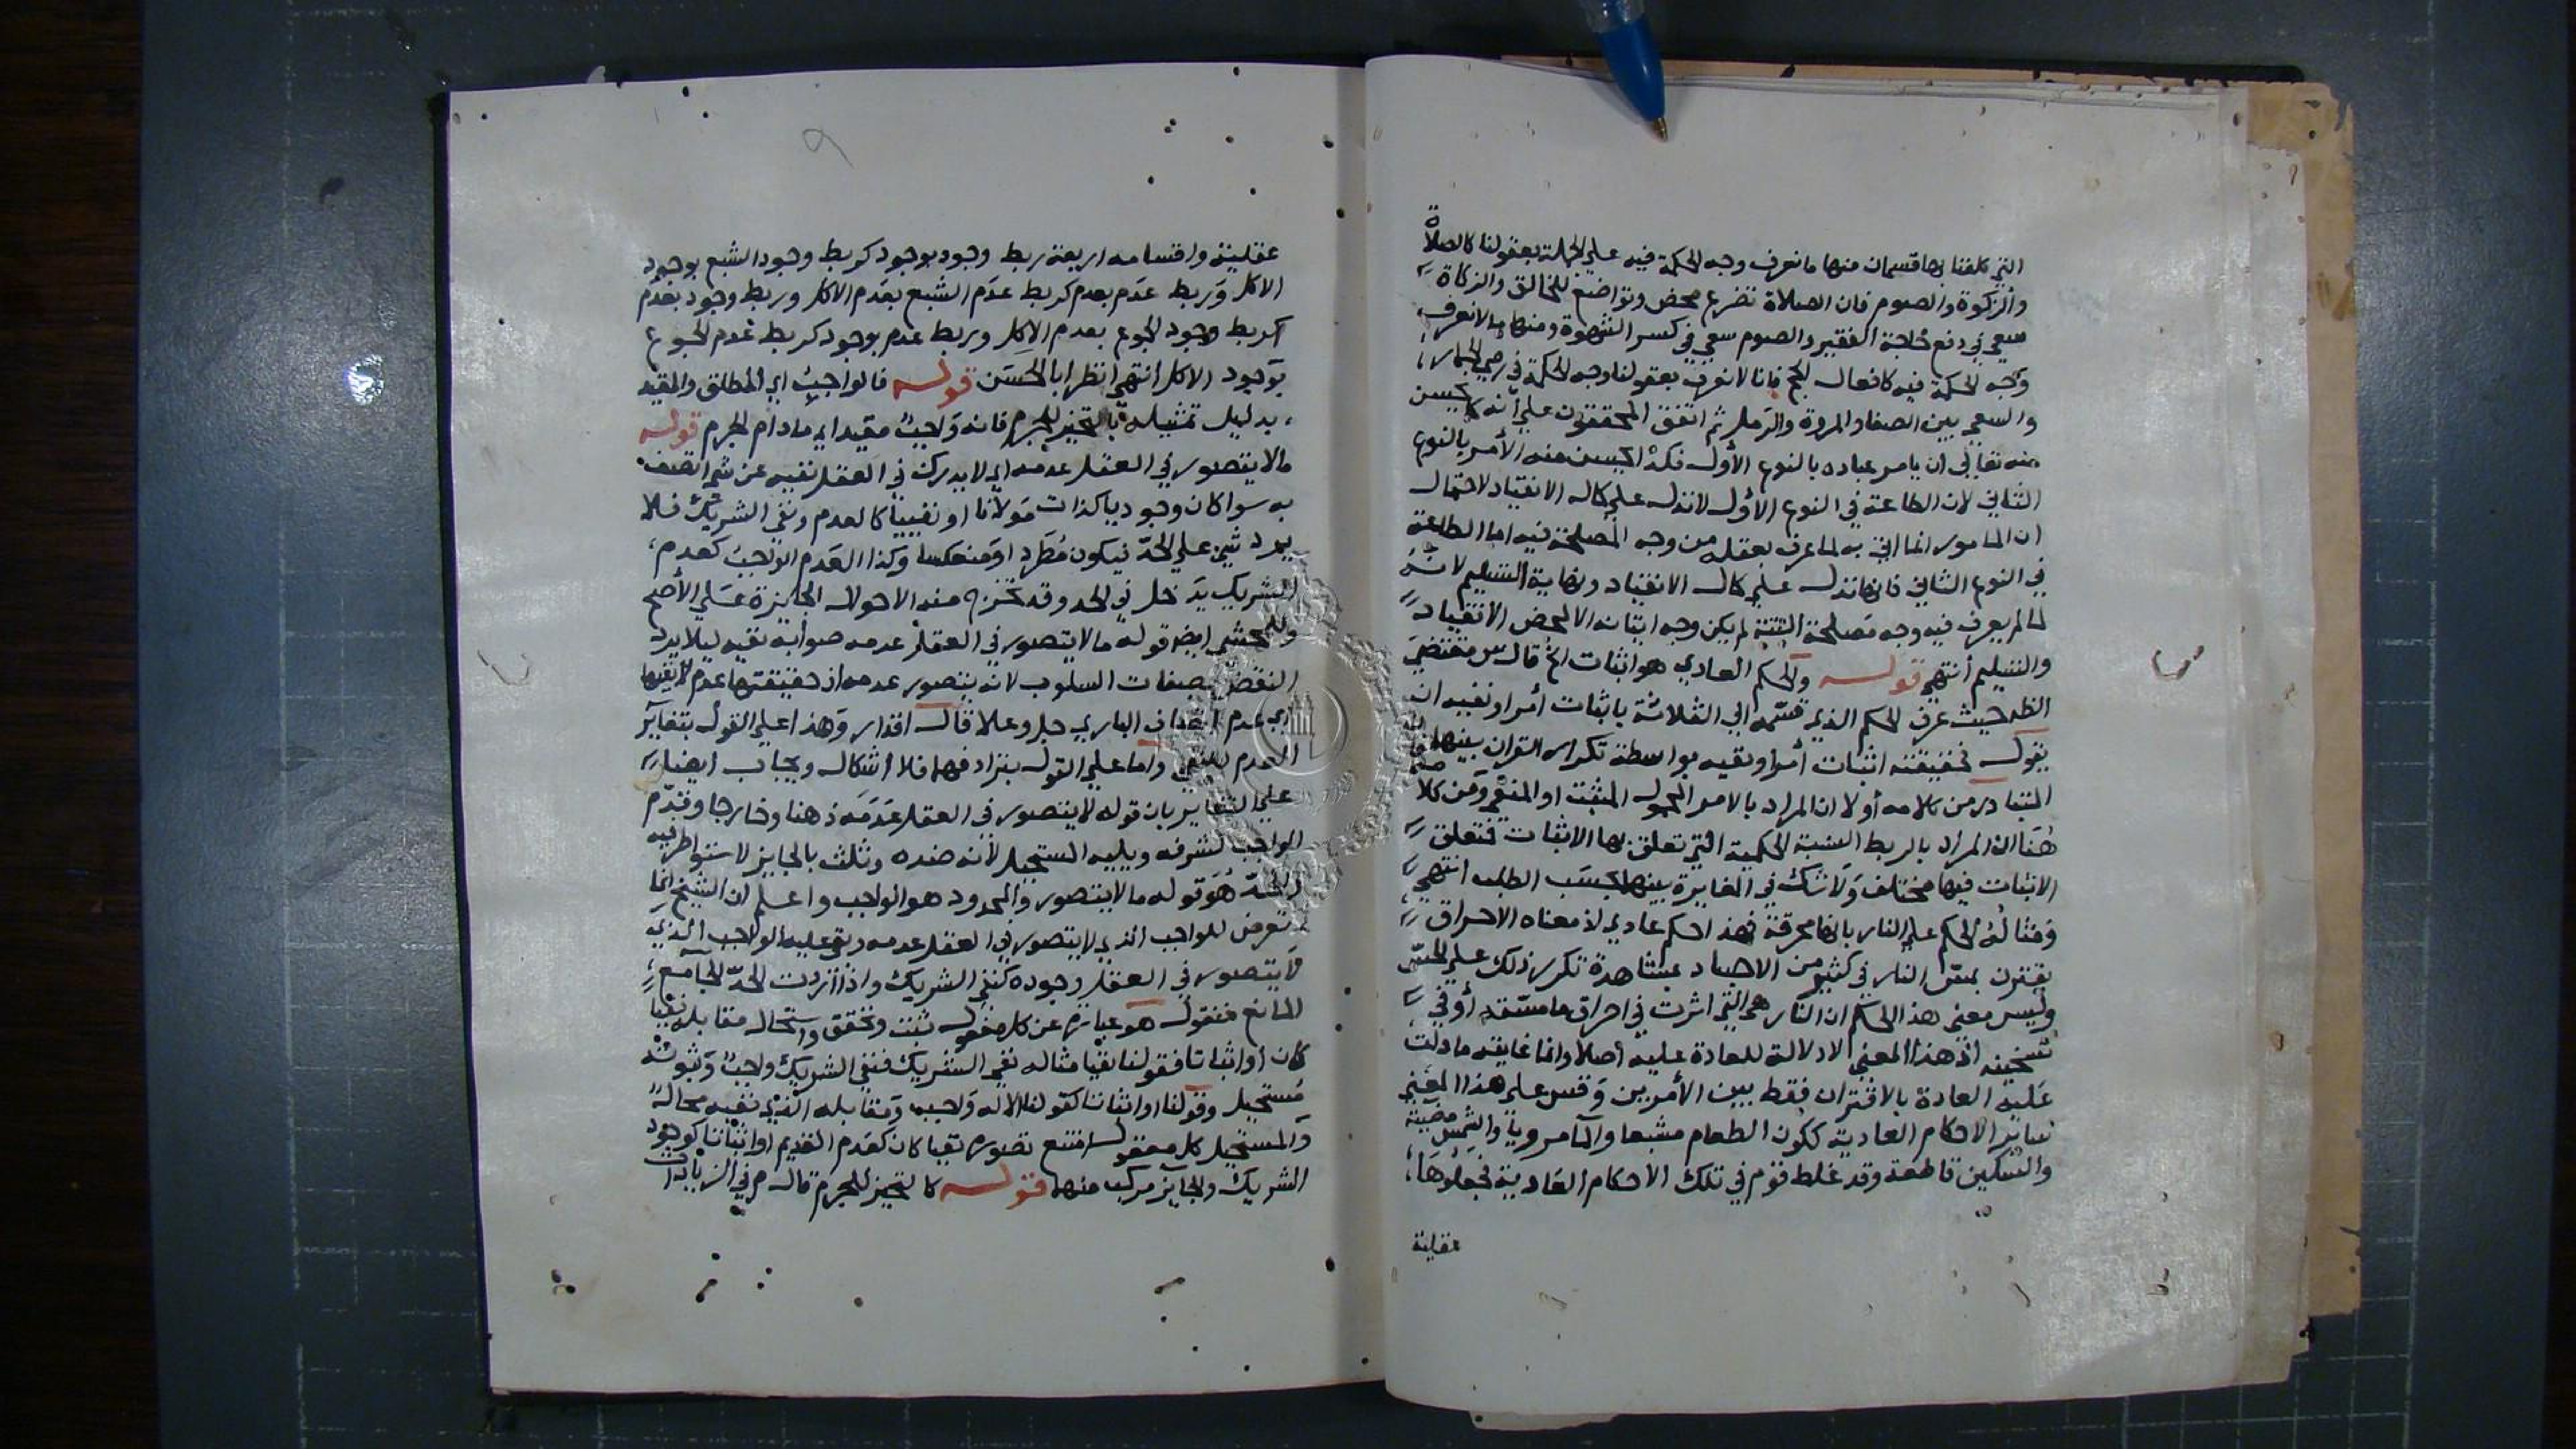 التي كلفنا بها قسمان منها ما نعرف وجه الحكمة فيه على الجملة بعقولنا كالصلاة
والزكوة والصوم فان الصلاة تضرع محض وتواضع للخالق والزكاة
سعي في دفع حاجة الفقير والصوم سعي في كسر الشهوة ومنها ما لا نعرف
وجه الحكمة فيه كافعال الحج فانا لا نعرف بعقولنا وجه الحكمة في رمي الجمار
والسعي بين الصفا والمروة والرمل ثم اتفق المحققون على أنه كما يحسن
منه تعالى ان يامر عباده بالنوع الأول فكذا يحسن منه الأمر بالنوع
الثاني لان الطاعة في النوع الأول لا تدل على كمال الانقياد لاحتمال
ان المامور انما اتى به لما عرف بعقله من وجه المصلحة فيه اما الطاعة
في النوع الثاني فانها تدل على كمال الانقياد ونهاية التسليم لانه
لما لم يعرف فيه وجه مصلحة البتة لم يكن وجه اتيانه الا لمحض الانقياد
والتسليم أنتهى قوله والحكم العادي هو اثبات الخ قال س مقتضى
النظر حيث عرف الحكم الذي قسمه الى الثلاثة باثبات أمر او نفيه ان
يقول فحقيقته اثبات أمر او نفيه بواسطة تكرار القران بينهما
المتبادر من كلامه أولا ان المراد بالامر المحمول المثبت او المنفي ومن كلامه
هنا ان المراد بالربط النسبة الحكمية التي تعلق بها الاثبات فتعلق
الاثبات فيها مختلف ولا شك في المغايرة بينهما بحسب الطلب انتهى
ومثاله الحكم على النار بانها محرقة فهذا حكم عادي اذ معناه الاحراق
يقترن بمس النار في كثير من الاجساد بمشاهدة تكرر ذلك على الحس
وليس معنى هذا الحكم ان النار هي التي اثرت في احراق ما مسته أو في
تسخينه اذ هذا المعنى لا دلالة للعادة عليه أصلا وانما غاية ما دلت
عليه العادة بالاقتران فقط بين الأمرين وقس على هذا المعنى
ساير الاحكام العادية ككون الطعام مشبعا والماء مرويا والشمس مضيئة
والسكين قاطعة وقد غلط قوم في تلك الاحكام العادية فجعلوها
عقلية
٩
عقلية واقسامه اربعة ربط وجود بوجود كربط وجود الشبع بوجود
الاكل وربط عدم بعدم كربط عدم الشبع بعدم الاكل وربط وجود بعدم
كربط وجود الجوع بعدم الاكل وربط عدم بوجود كربط عدم الجوع
بوجود الاكل انتهى انظر ابا الحسن قوله فالواجب اي المطلق والمقيد
بدليل تمثيله بالتحيز للجرم فانه واجب مقيد اي ما دام الجرم قوله
مالا يتصور في العقل عدمه اي لا يدرك في العقل نفيه عن شي اتصف
به سوا كان وجوديا كذات مولانا او نفييا كالعدم ونفي الشريك فلا
يرد شي على الحد فيكون مطردا ومنعكسا وكذا العدم الواجب كعدم
الشريك يدخل في الحد وقد تخرج منه الاحوال الجايزة على الأصح
وللمحشي ايضا قوله مالا يتصور في العقل عدمه صوابه نفيه ليلا يرد
النقض بصفات السلوب لانه يتصور عدمه اذ حقيقتها عدم لا نفيها
اي عدم اتصاف الباري جل وعلا قال اقدار وهذا على القول بتغاير
العدم للنفي واما على القول بترادفهما فلا اشكال ويجاب ايضا
على التغاير بان قوله لا يتصور في العقل عدمه ذهنا وخارجا وقدم
الواجب لشرفه ويليه المستحيل لأنه ضده وثلث بالجايز لاستواء طرفيه
والحد هو قوله مالا يتصور والمحدود هو الواجب واعلم ان الشيخ انما
تعرض للواجب الذي لا يتصور في العقل عدمه وبقي عليه الواجب الذي
لا يتصور في العقل وجوده كنفي الشريك واذا أردت الحد الجامع
المانع فنقول هو عبارة عن كل معقول ثبت وتحقق واستحال مقابله نفيا
كان أو اثباتا فقولنا نفيا مثاله نفي الشريك فنفي الشريك واجب وثبوته
مستحيل وقولنا او اثباتا كقولنا الاله واجب ومقابله الذي نفيه محال
والمستحيل كل معقول امتنع تصوره نفيا كان كعدم القديم او اثباتا كوجود
الشريك والجايز مركب منهما قوله كالتحيز للجرم قال م في الزيادات